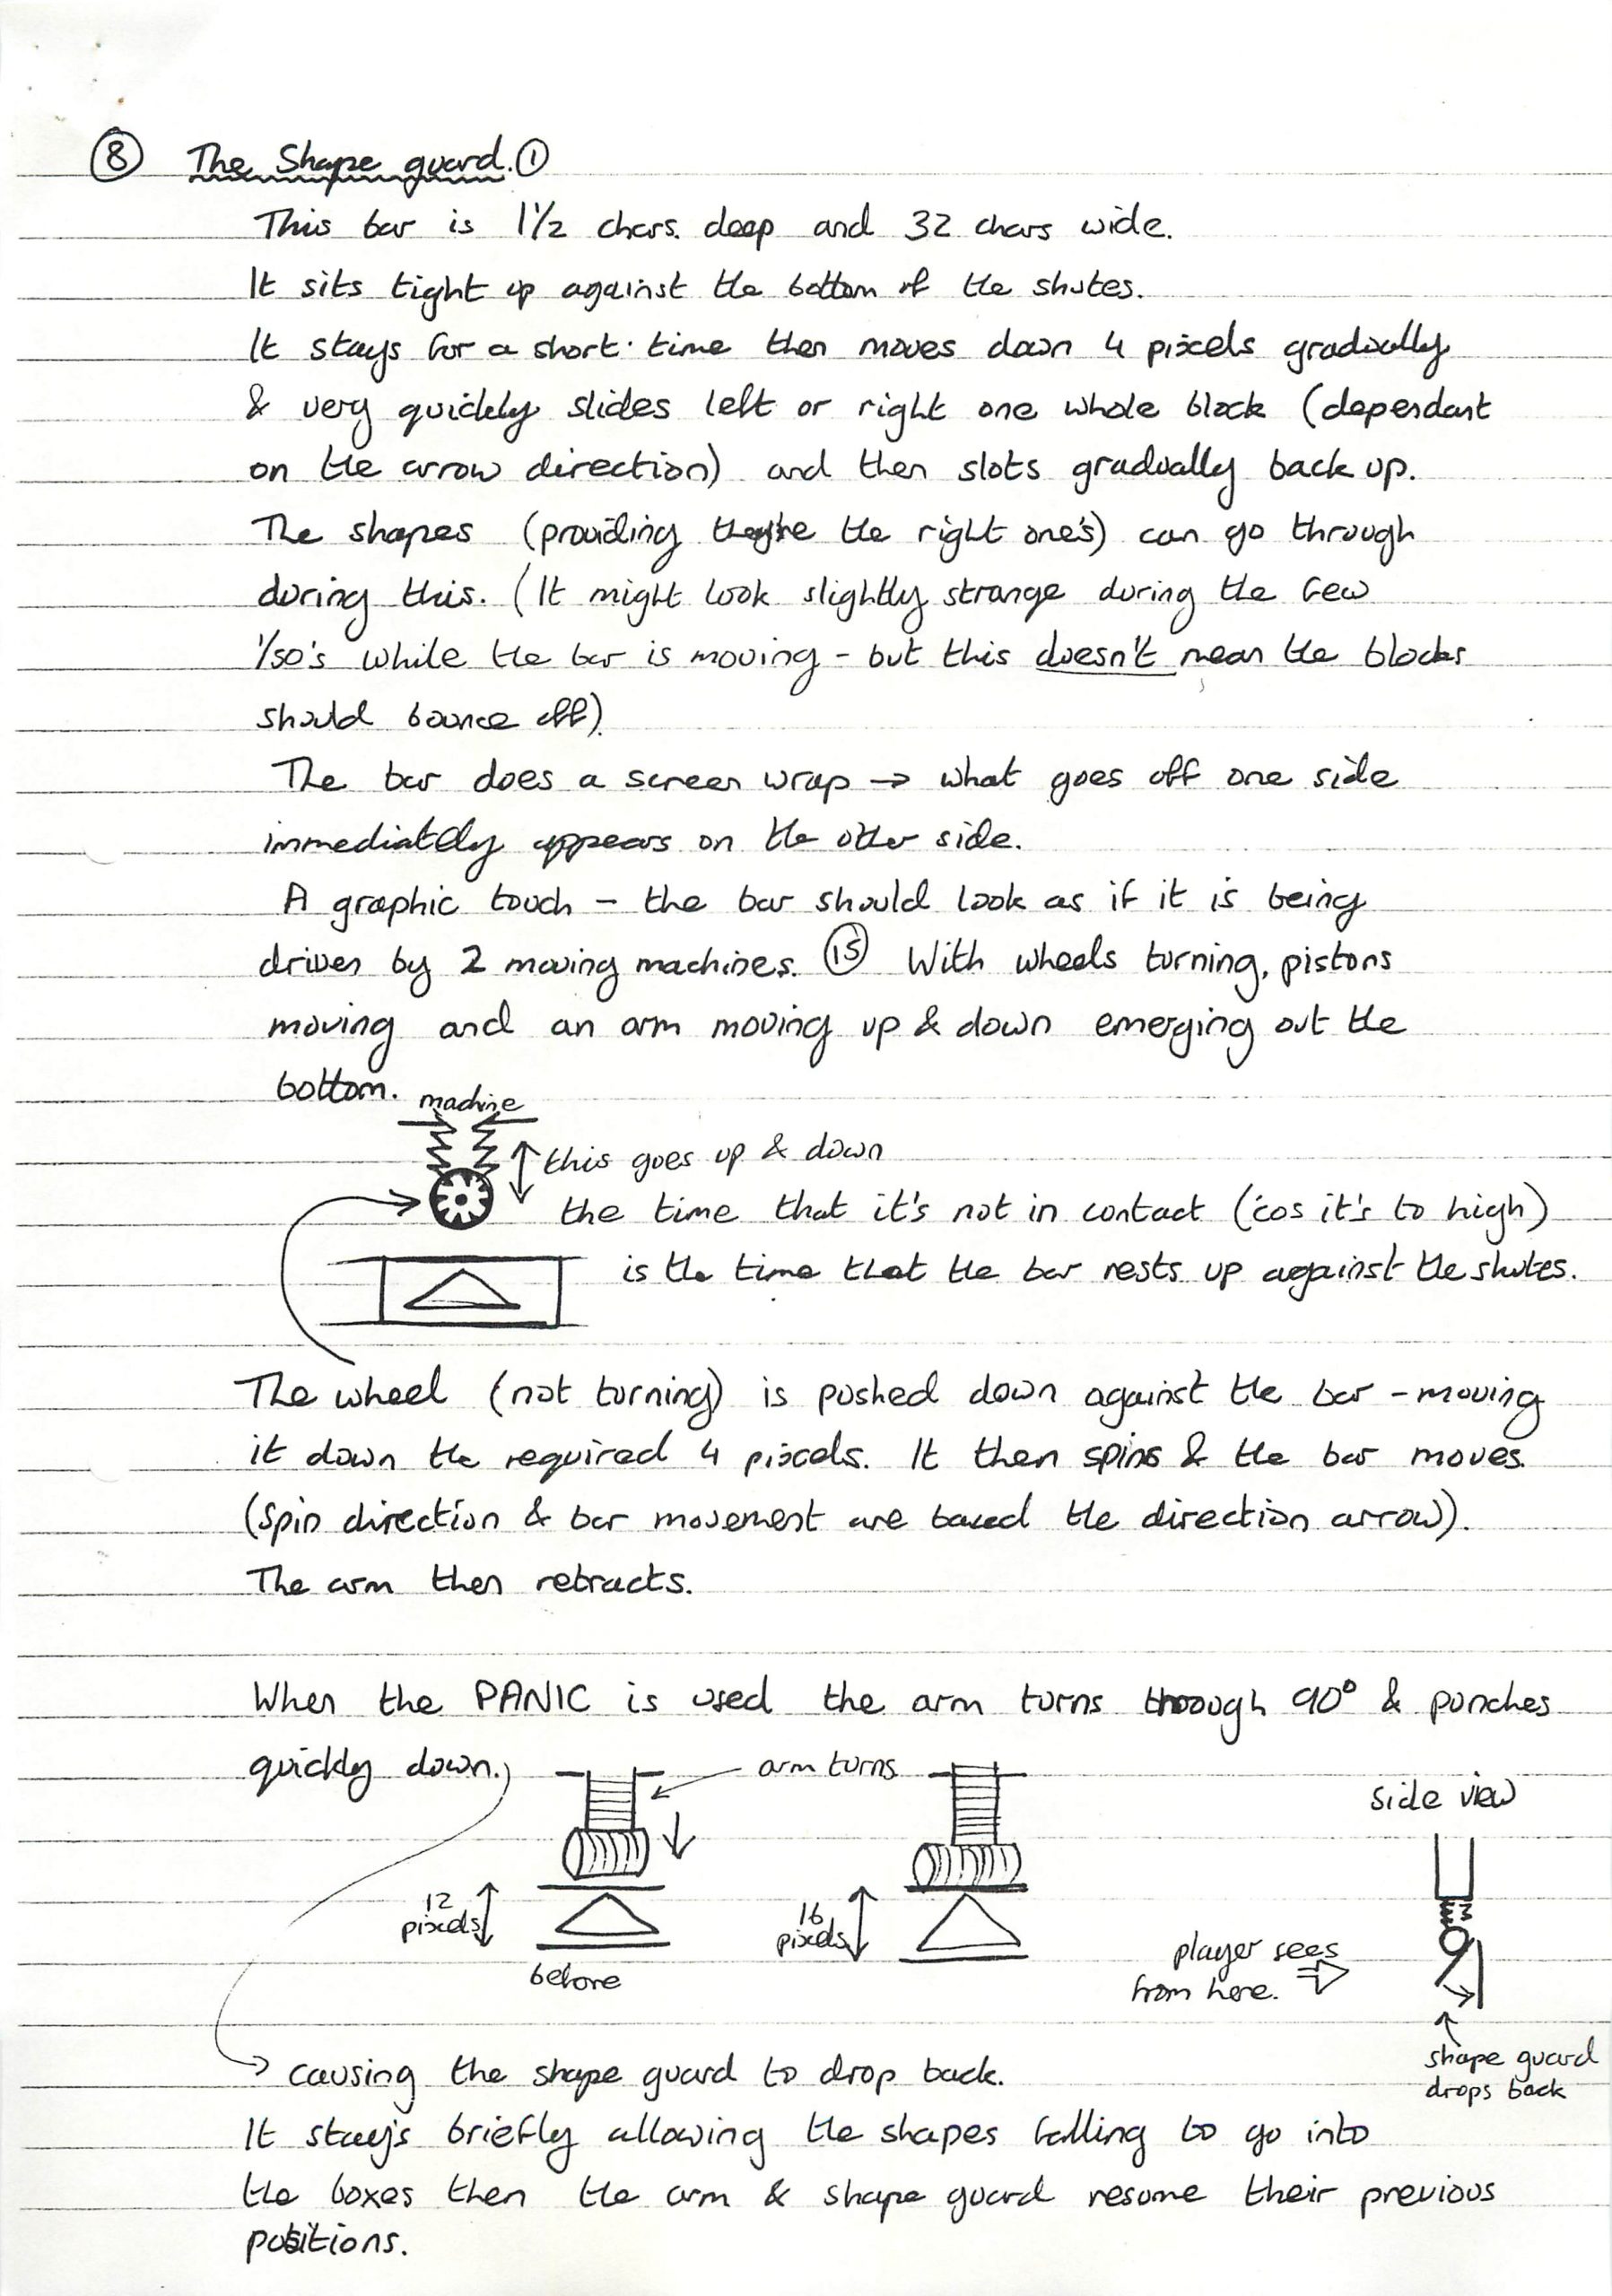 ⑧ The Shape guard. ①
This bar is 1½ chars. deep and 32 chars wide.
It sits tight up against the bottom of the shutes.
It stays for a short time then moves down 4 pixels gradually
& very quickly slides left or right one whole block (dependant
on the arrow direction) and then slots gradually back up.
The shapes (providing they're the right one's) can go through
during this. (It might look slightly strange during the few
1/50's while the bar is moving - but this doesn't mean the blocks
should bounce off).
The bar does a screen wrap → what goes off one side
immediately appears on the other side.
A graphic touch - the bar should look as if it is being
driven by 2 moving machines. ⑮ With wheels turning, pistons
moving and an arm moving up & down emerging out the
bottom.
machine
this goes up & down
the time that it's not in contact ('cos it's to high)
is the time that the bar rests up against the shutes.
The wheel (not turning) is pushed down against the bar - moving
it down the required 4 pixels. It then spins & the bar moves.
(Spin direction & bar movement are based the direction arrow).
The arm then retracts.
When the PANIC is used the arm turns through 90° & punches
quickly down.
arm turns
side view
12
pixels
before
16
pixels
player sees
from here.
shape guard
drops back
→ causing the shape guard to drop back.
It stay's briefly allowing the shapes falling to go into
the boxes then the arm & shape guard resume their previous
positions.